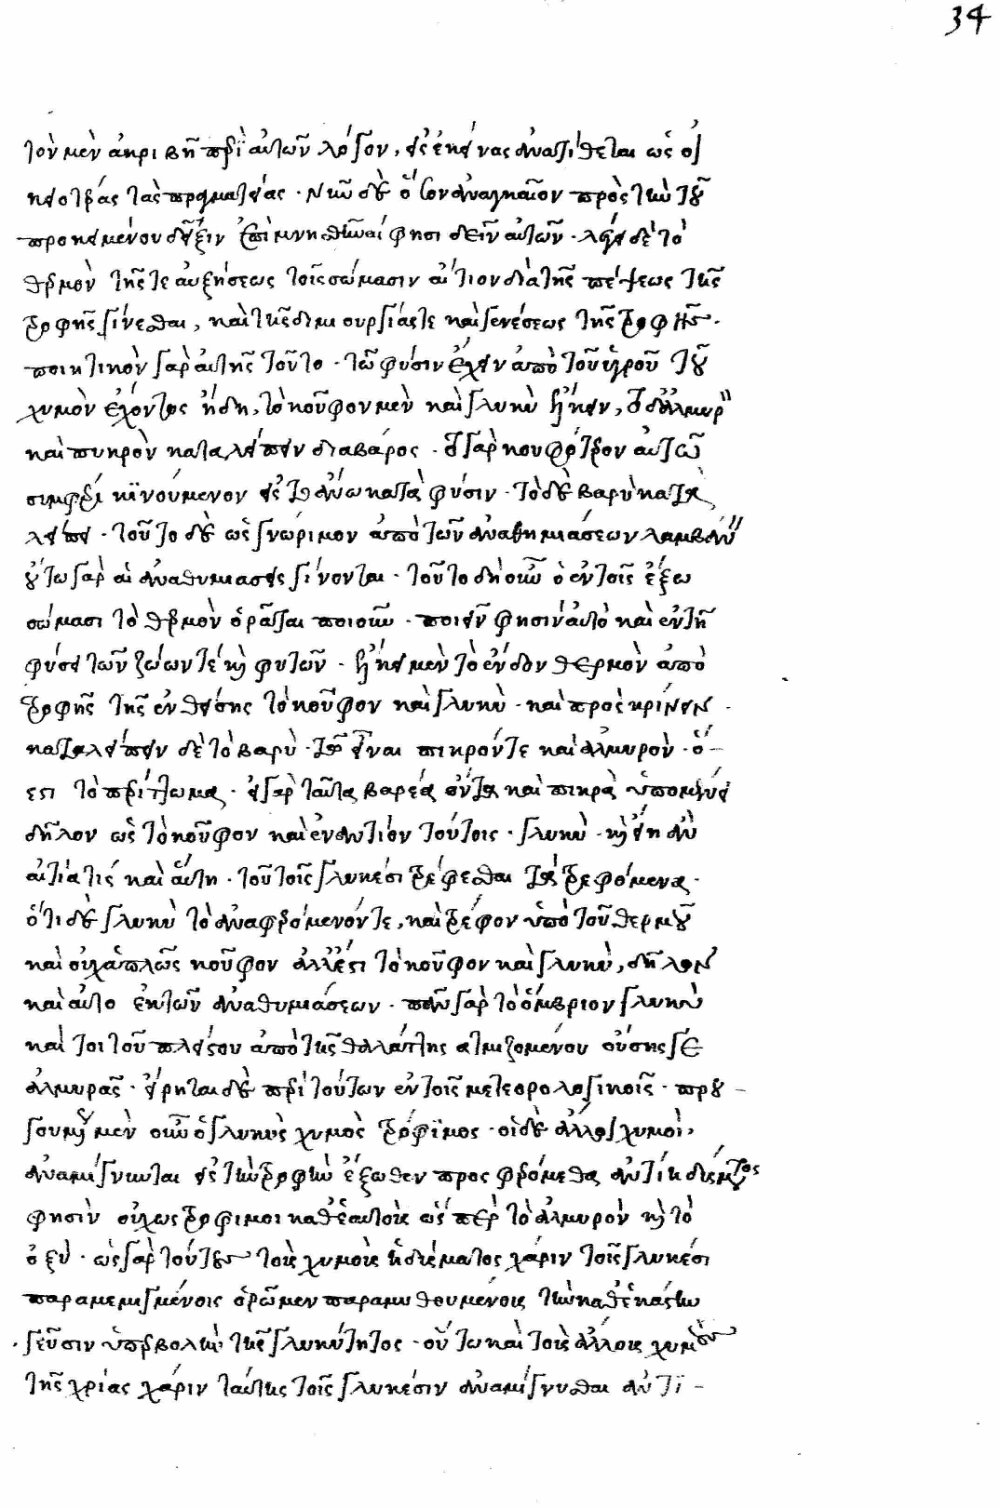 34
τὸν μὲν ἀκριβῆ περὶ αὐτῶν λόγον, εἰς ἐκείνας ἀνατίθεται ὡς οἰ
κειοτέρας τὰς πραγματείας. νῦν δὲ ὅσον ἀναγκαῖον πρὸς τὴν τοῦ
προκειμένου δεῖξιν ἐπιμνησθῆναί φησι δεῖν αὐτῶν. λέγει δὲ τὸ
θερμὸν τῆς τε αὐξήσεως τοῖς σώμασιν αἴτιον διὰ τῆς πέψεως τῆς
τροφῆς γίνεσθαι, καὶ τῆς δημιουργίας τε καὶ γενέσεως τῆς τροφῆς.
ποιητικὸν γὰρ αὐτῆς τοῦτο. τῷ φύσιν ἔχειν ἀπὸ τοῦ ὑγροῦ τοῦ
χυμὸν ἔχοντος ἤδη, τὸ κοῦφον μὲν καὶ γλυκὺ ἕλκειν, τὸ δ' ἁλμυρὸν
καὶ πικρὸν καταλείπειν διὰ βάρος. τὸ γὰρ κουφότερον αὐτῷ
συμφέρει κινούμενον εἰς τὸ ἄνω κατὰ φύσιν. τὸ δὲ βαρὺ κατα
λείπει. τοῦτο δὲ ὡς γνώριμον ἀπὸ τῶν ἀναθυμιάσεων λαμβάνει
οὕτω γὰρ αἱ ἀναθυμιάσεις γίνονται. τοῦτο δὴ οὖν ὃ ἐν τοῖς ἔξω
σώμασι τὸ θερμὸν ὁρᾶται ποιοῦν. ποιεῖν φησιν αὐτὸ καὶ ἐν τῇ
φύσει τῶν ζώων τε καὶ φυτῶν. ἕλκει μὲν τὸ ἔνδον θερμὸν ἀπὸ
τροφῆς τῆς ἐνθείσης τὸ κοῦφον καὶ γλυκὺ. καὶ προσκρίνειν.
καταλείπειν δὲ τὸ βαρὺ. τῷ εἶναι πικρόν τε καὶ ἁλμυρὸν. ὅ-
εστι τὸ περίττωμα. εἰ γὰρ ταῦτα βαρέα ὄντα καὶ πικρὰ ὑπομένει
δῆλον ὡς τὸ κοῦφον καὶ ἐναντίον τούτοις. γλυκὺ. καὶ εἴη ἂν
αἰτία τίς καὶ αὕτη. τοῦ τοῖς γλυκέσι τρέφεσθαι τὰ τρεφόμενα.
ὅτι δὲ γλυκὺ τὸ ἀναφερόμενόν τε, καὶ τρέφον ὑπὸ τοῦ θερμοῦ
καὶ οὐχ ἁπλῶς κοῦφον ἀλλ' ἔστι τὸ κοῦφον καὶ γλυκὺ, δῆλον
καὶ αὐτὸ ἐκ τῶν ἀναθυμιάσεων. πᾶν γὰρ τὸ ὄμβριον γλυκὺ
καὶ τοι τοῦ πλείστου ἀπὸ τῆς θαλάττης ἀτμιζομένου οὔσης γε
ἁλμυρᾶς. εἴρηται δὲ περὶ τούτων ἐν τοῖς μετεορολογικοῖς. προη-
γουμένως μὲν οὖν ὁ γλυκὺς χυμὸς τρόφιμος. οἱ δὲ ἄλλοι χυμοὶ,
ἀναμίγνυνται εἰς τὴν τροφὴν ἔξωθεν προσφερόμεθα ἀντὶ ἡδύσματος
φησὶν οὐχ ὡς τρόφιμοι καθ' ἑαυτοὺς ὥσπερ τὸ ἁλμυρὸν καὶ τὸ
ὀξύ. ὡς γὰρ τούτους τοὺς χυμοὺς ἡδύσματος χάριν τοῖς γλυκέσι
παραμεμιγμένους ὁρῶμεν παραμυθουμένους τὴν καθ' ἑκάστην
γεῦσιν ὑπερβολὴν τῆς γλυκύτητος. οὕτω καὶ τοὺς ἄλλους χυμοὺς
τῆς χρείας χάριν ταύτης τοῖς γλυκέσιν ἀναμίγνυσθαι ἀντι-